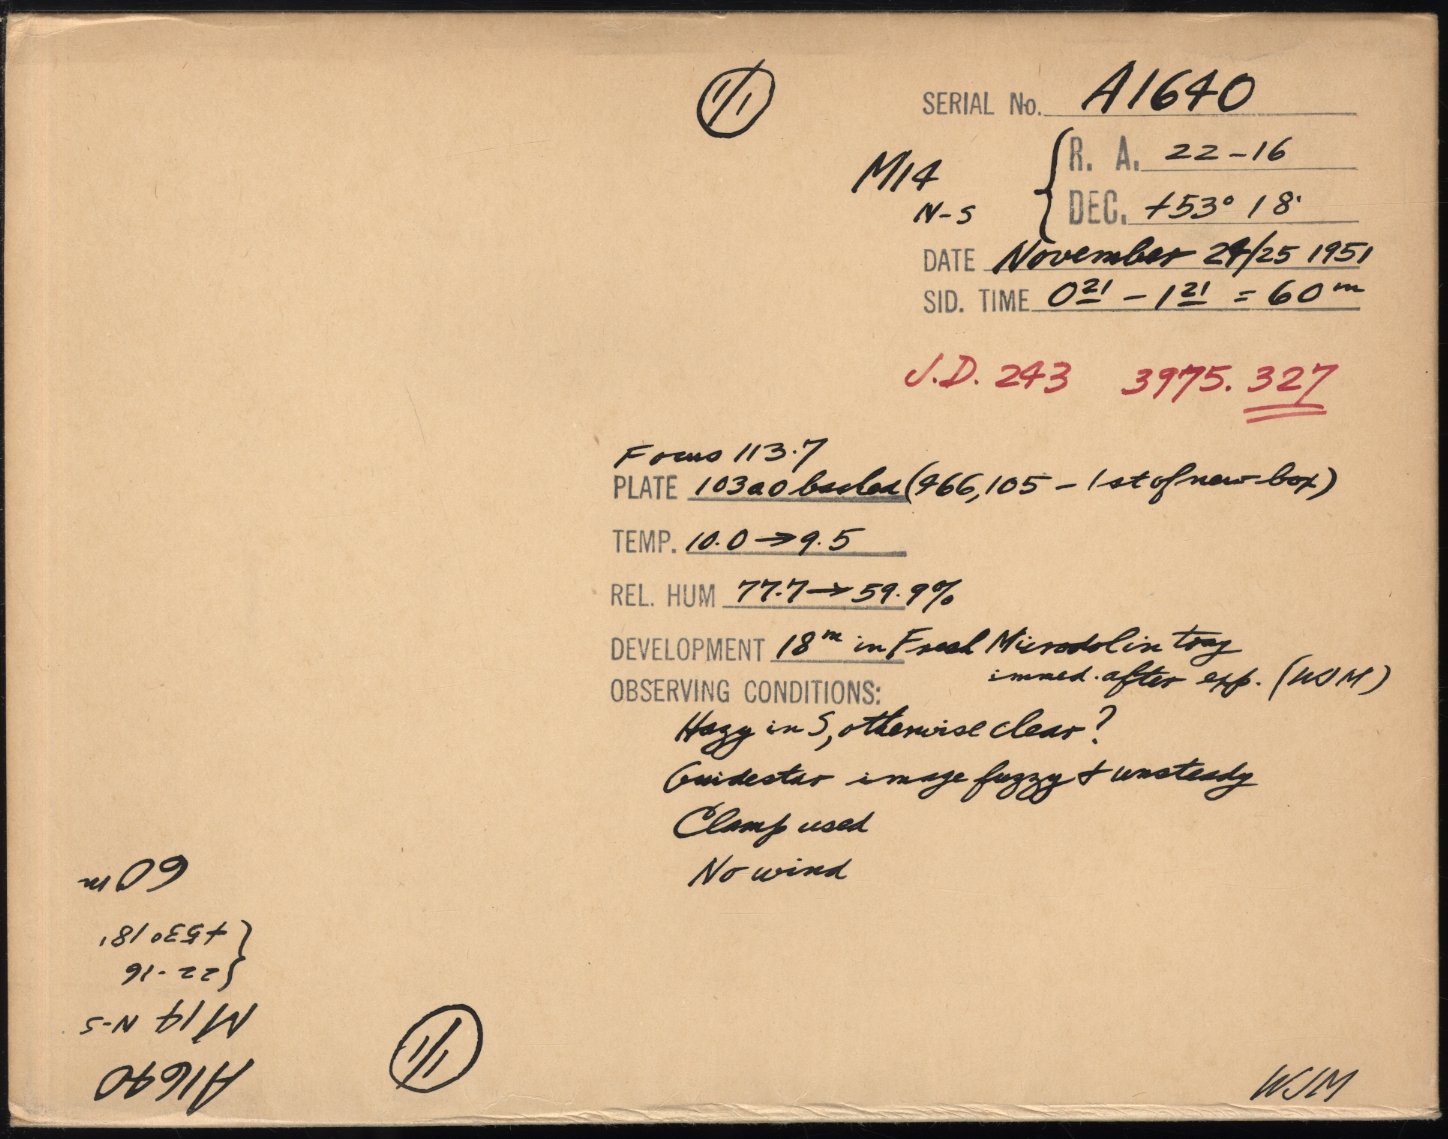 1/1
SERIAL No. A1640
M14 { R. A. 22-16
N-S DEC. +53° 18'
DATE November 24/25 1951
SID. TIME 0 21 - 1 21 = 60 m
J.D. 243 3975.327
Focus 113.7
PLATE 103a0 backed (466,105 - 1st of new box)
TEMP. 10.0 → 9.5
REL. HUM 77.7 → 59.9%
DEVELOPMENT 18 m in Fresh Microdol in tray
immed. after exp. (WJM)
OBSERVING CONDITIONS:
Hazy in S, otherwise clear?
Guidestar image fuzzy + unsteady
Clamp used
No wind
A1640
M14 N-S
{ 22-16
+53° 18'
60 m
1/1
WJM